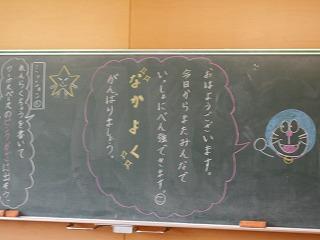 おはようございます。
今日からまたみんなで
いっしょにべん強できます。
なかよく
がんばりましょう。
ミッション①
れんらくちょうを書いて